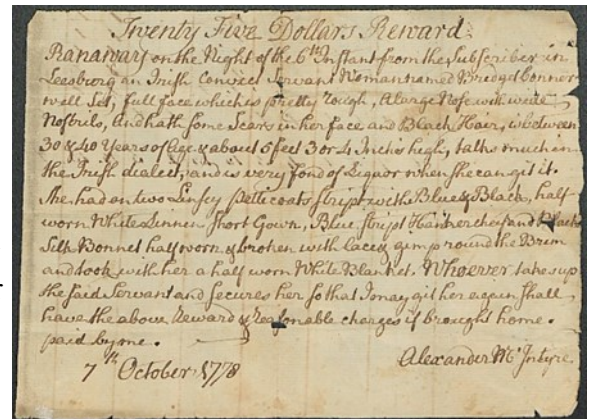 Twenty Five Dollars Reward.
Ranaway on the Night of the 6th Instant from the Subscriber in
Leesburg an Irish Convict Servant Woman named Bridget Conner
well Set, full face which is pretty rough, a large Nose with wide
Nostrils, and hath some Scars in her face and Black Hair, is between
30 & 40 Years of Age & about 5 feet 3 or 4 Inches high, talks much in
the Irish dialect, and is very fond of Liquor when she can git it.
She had on two Linsey petticoats stript with Blue & Black, half
worn White Linnen Short Gown, Blue stript Hankerchief and Black
Silk Bonnet half worn & broken with lace & gimp round the Brim
and took with her a half worn White Blanket. Whoever takes up
the said Servant and secures her so that I may git her again shall
have the above Reward & reasonable charges if brought home.
paid by me.
Alexander Mc Intyre.
7th October 1778